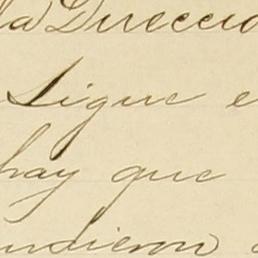 la Direccio
Sigue e
hay que
undieron